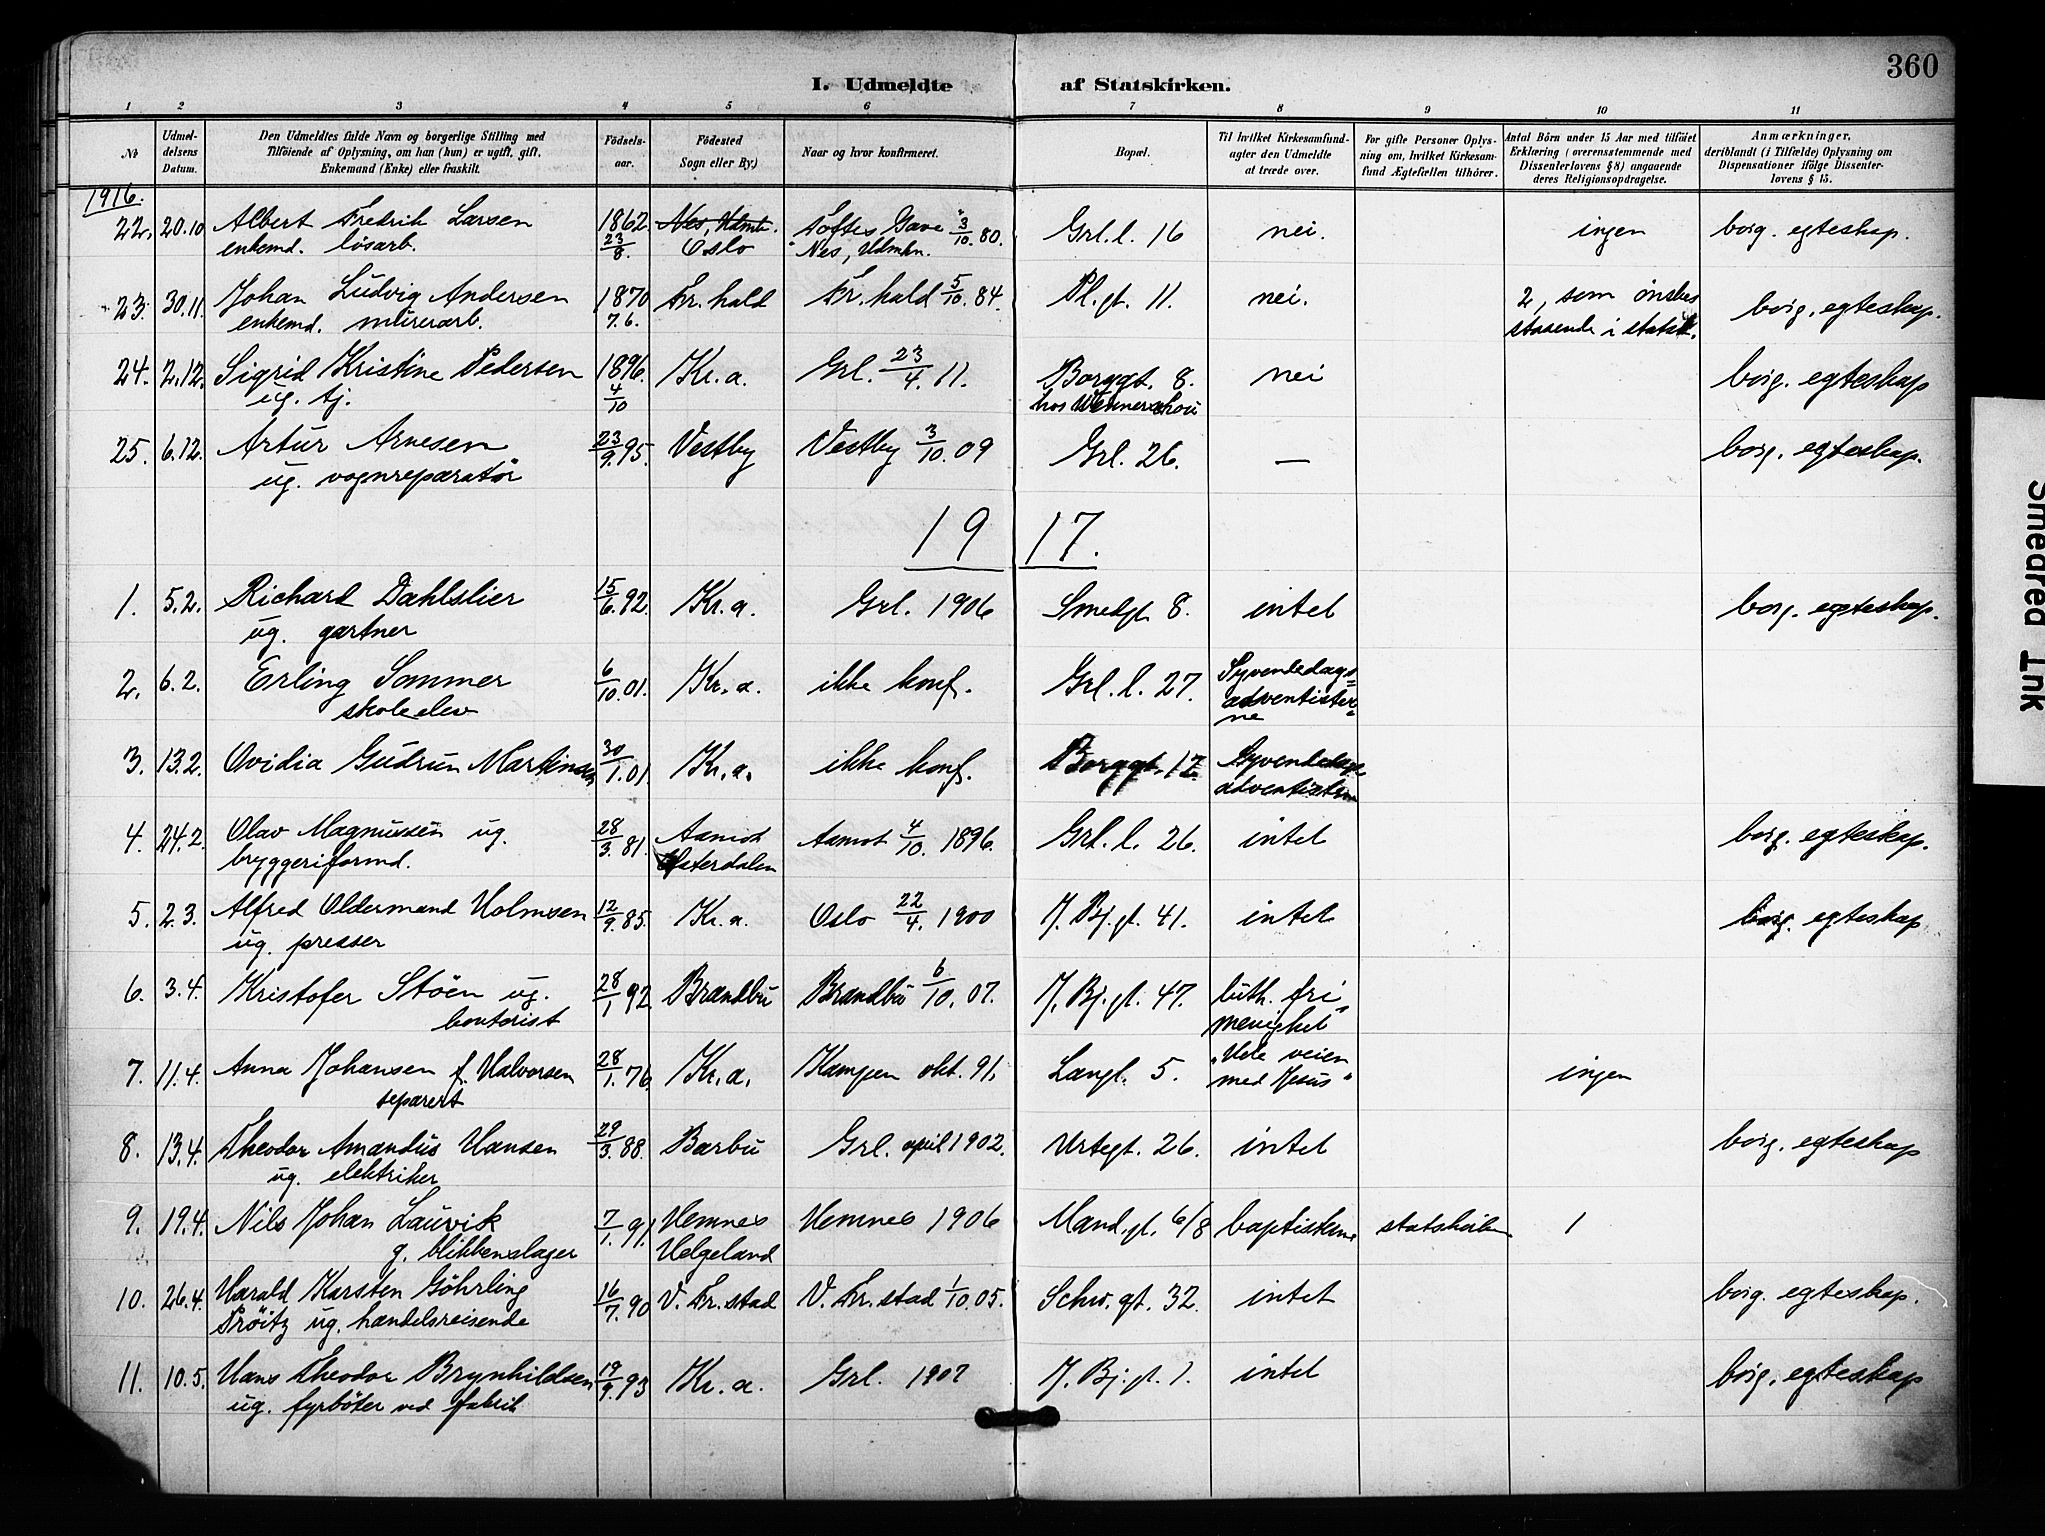 360
I. Udmeldte af Statskirken.
1 2 3 4 5 6 7 8 9 10 11
No
Udmeldelsens Datum.
Den Udmeldtes fulde Navn og borgerlige Stilling med Tilføiende af Oplysning, om han (hun) er ugift, gift, Enkemand (Enke) eller fraskilt.
Fødselsaar.
Fødested Sogn eller By.)
Naar og hvor konfirmeret.
Bopæl.
Til hvilket Kirkesamfund agter den Udmeldte at træde over.
For gifte Personer Oplysning om, hvilket Kirkesamfund Ægtefællen tilhører.
Antal Børn under 15 Aar med tilføiet Erklæring (overensstemmende med Dissenterlovens § 8) angaaende deres Religionsopdragelse.
Anmærkninger, deriblandt (i Tilfælde) Oplysning om Dispensationer ifølge Dissenterlovens § 15.
1916.
22. 20.10 Albert Fredrik Larsen 1862 Nes, Hdmk. Toftes Gave 3/10. 80. Grl. l. 16 nei. ingen borg. egteskap.
enkemd. løsarb. 23/8. Oslo Nes, Hdmkn.
23. 30.11. Johan Ludvig Andersen 1870 Fr. hald Fr. hald 5/10. 84. Pl. gt. 11. nei. 2, som ønskes borg. egteskap.
enkemd. murerarb. 7.6. staaende i statsk.
24. 2.12. Sigrid Kristine Pedersen 1896. Kr.a. Grl. 23/4. 11. Borggt. 8. nei borg. egteskap
ug. tj. 4/10 hos Wennerschou
25. 6.12. Artur Arnesen 23/9. 95. Vestby Vestby 3/10. 09 Grl. 26. — borg. egteskap.
ug. vognreparatør
19 17.
1. 5.2. Richard Dahlslier 15/6. 92. Kr.a. Grl. 1906 Smedgt. 8. intet borg. egteskap.
ug. gartner
2. 6.2. Erling Sommer 6/10. 01. Kr.a. ikke konf. Grl. l. 27. Syvendedags=
skoleelev adventister=
ne
3. 13.2. Ovidia Gudrun Martinsen 30/1. 01. Kr.a. ikke konf. Borggt. 12. Syvendedags
adventistene
4. 24.2. Olav Magnussen ug. 28/3. 81. Aamot Aamot 4/10. 1896. Grl. l. 26. intet borg. egteskap.
bryggeriformd. Østerdalen
5. 2.3. Alfred Oldermand Holmsen 12/9. 85. Kr.a. Oslo 22/4. 1900 J. Bj. gt. 41. intet borg. egteskap
ug. presser
6. 3.4. Kristofer Støen ug. 28/1 92. Brandbu Brandbu 6/10. 07. J. Bj. gt. 47. luth. fri=
kontorist menighet
7. 11.4. Anna Johansen f. Halvorsen 28/1. 76. Kr.a. Kampen okt. 91. Langl. 5. "Hele veien ingen
separert med Jesus"
8. 13.4. Theodor Amandus Hansen 29/3. 88. Barbu Grl. april 1902. Urtegt. 26. intet borg. egteskap
ug. elektriker
9. 19.4. Nils Johan Lauvik 7/1. 91. Hemnes Hemnes 1906 Mand. gt. 6/8 baptistene statskirken 1
g. blikkenslager Helgeland
10. 26.4. Harald Karsten Göhrling 16/7. 90 V. Fr. stad V. Fr. stad 1/10. 05. Schw. gt. 32. intet borg. egteskap.
Prøitz ug. handelsreisende
11. 10.5. Hans Theodor Brynhildsen 19/9. 93 Kr.a. Grl. 1907 J. Bj. gt. 1. intet borg. egteskap
ug. fyrbøter ved fabrik
Smedred Ink